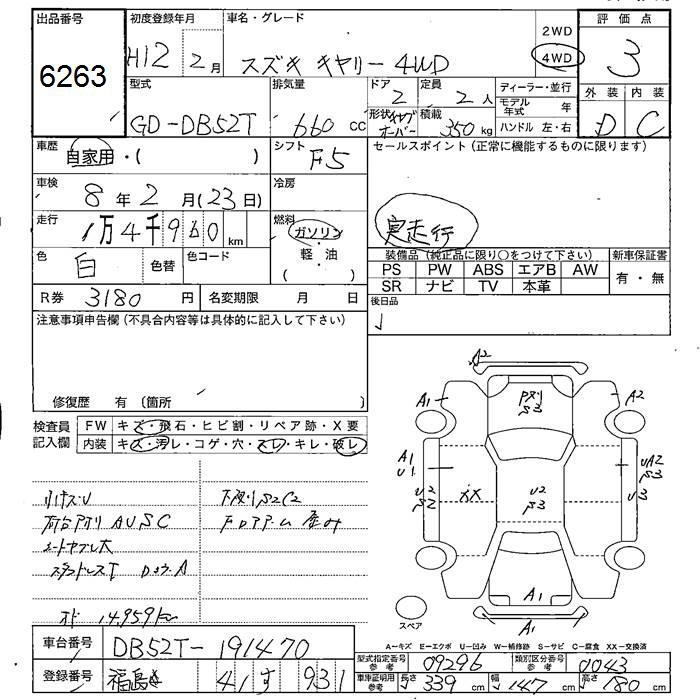 出品番号
6263
初度登録年月
H12 2月
車名・グレード
スズキ キャリー 4WD
2WD
4WD
評価点
3
外装 内装
D C
型式
GD-DB52T
排気量
660 cc
ドア
2
定員
2人
形状
積載
350 kg
ディーラー・並行
モデル年式 年
ハンドル 左・右
車歴
自家用・( )
シフト
F5
セールスポイント(正常に機能するものに限ります)
実走行
車検
8年2月(23日)
冷房
走行
1万4千960 km
燃料
ガソリン
軽・油
( )
色
白
色替
色コード
装備品(純正品に限り○をつけて下さい)
新車保証書
PS PW ABS エアB AW
SR ナビ TV 本革
有・無
R券 3180 円
名変期限 月 日
後日品
注意事項申告欄(不具合内容等は具体的に記入して下さい)
修復歴 有 〔箇所 〕
検査員
記入欄
FW キズ・飛石・ヒビ割・リペア跡・X要
内装 キズ・汚レ・コゲ・穴・スレ・キレ・破レ
A2
A1
A2
S3
A1
U1
UA2
S3
U2
S2
XX
U2
S3
U3
A1
A1
スペア
小キズ・U
荷台アオリ AUSC
シートヤブレ大
下廻りS2C2
14,959km
A-キズ E-エクボ U-凹み W-補修跡 S-サビ C-腐食 XX-交換済
車台番号
DB52T-191470
登録番号
福島 41 す 931
型式指定番号
参考
09296
類別区分番号
参考
0043
車庫証明用
参考
長さ 339 cm
幅 147 cm
高さ 180 cm